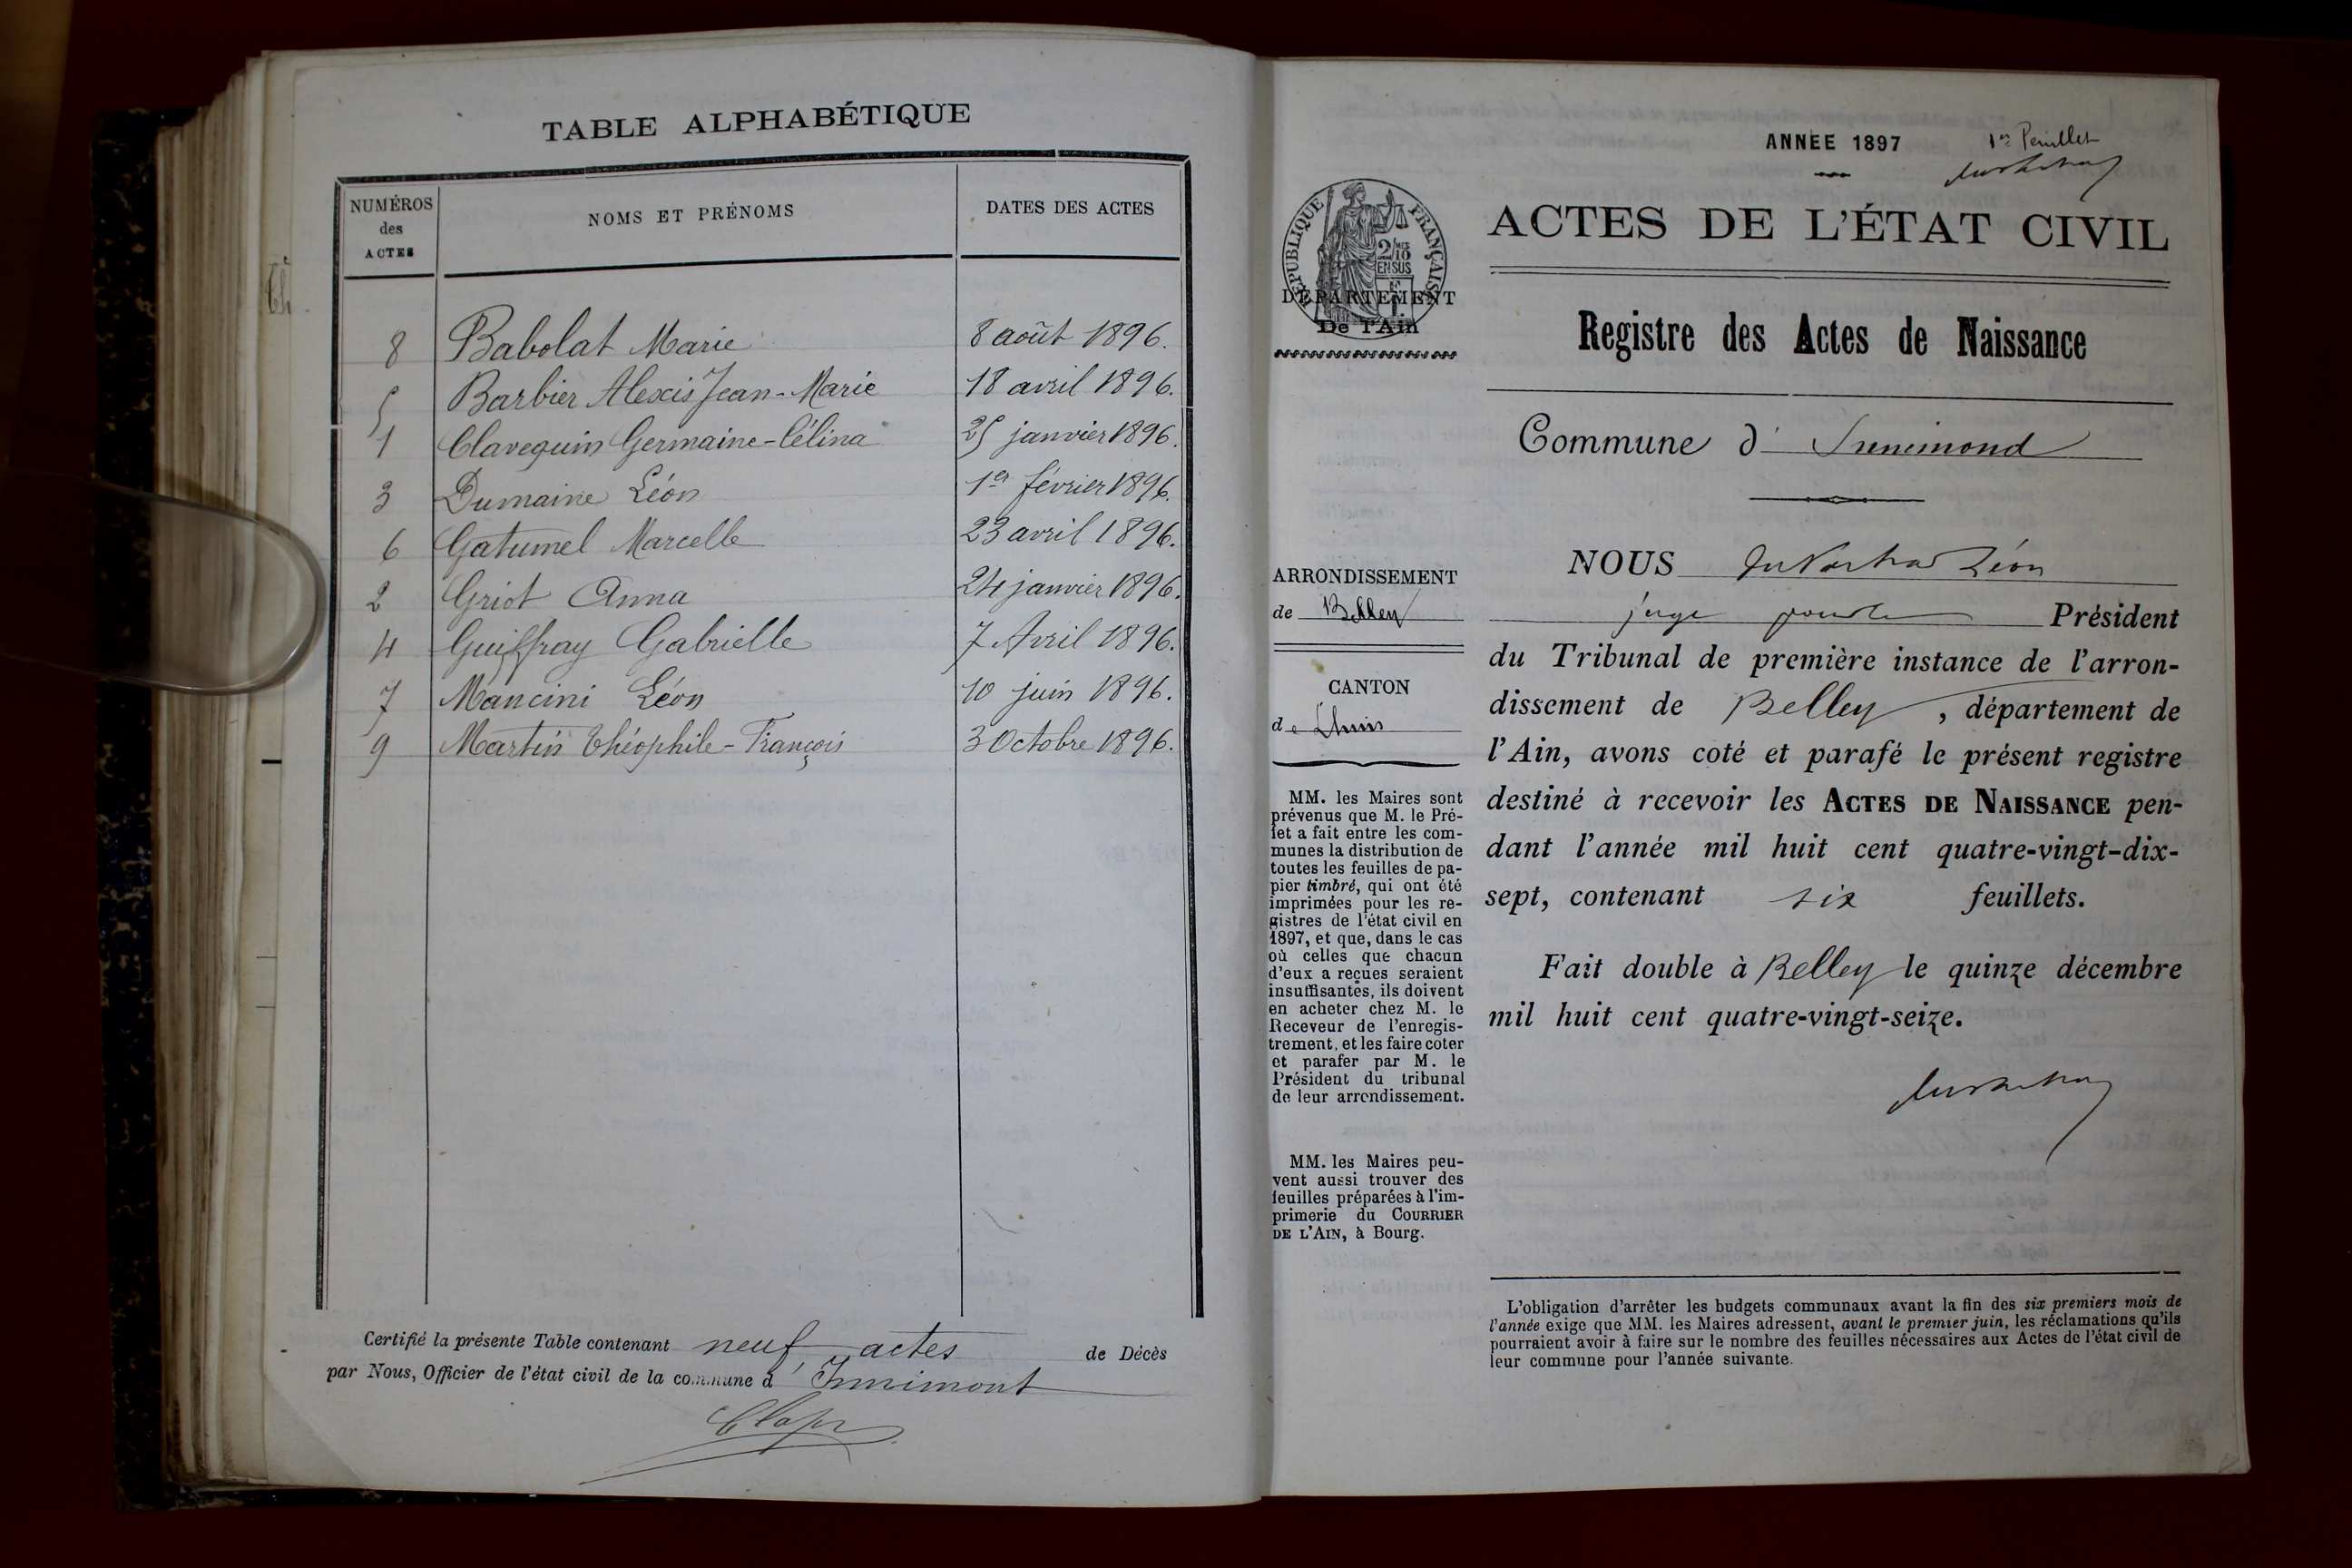 TABLE ALPHABÉTIQUE
NUMÉROS
des
ACTES
NOMS ET PRÉNOMS
DATES DES ACTES
8 Babolat Marie 8 août 1896.
5 Barbier Alexis Jean-Marie 18 avril 1896.
1 Clavequin Germaine-Célina 25 janvier 1896.
3 Dumaine Léon 1er février 1896.
6 Gatumel Marcelle 23 avril 1896.
2 Griot Anna 24 janvier 1896.
4 Guiffray Gabrielle 7 Avril 1896.
7 Mancini Léon 10 juin 1896.
9 Martin Théophile-François 3 Octobre 1896.
Certifié la présente Table contenant neuf actes de Décès
par Nous, Officier de l'état civil de la commune d' Innimont
ANNÉE 1897
1er feuillet
RÉPUBLIQUE FRANÇAISE
2/10
EN SUS
DÉPARTEMENT
De l'Ain
ACTES DE L'ÉTAT CIVIL
Registre des Actes de Naissance
Commune d' Innimond
ARRONDISSEMENT
de Belley
CANTON
de Lhuis
MM. les Maires sont
prévenus que M. le Pré-
fet a fait entre les com-
munes la distribution de
toutes les feuilles de pa-
pier timbré, qui ont été
imprimées pour les re-
gistres de l'état civil en
1897, et que, dans le cas
où celles que chacun
d'eux a reçues seraient
insuffisantes, ils doivent
en acheter chez M. le
Receveur de l'enregis-
trement, et les faire coter
et parafer par M. le
Président du tribunal
de leur arrondissement.
MM. les Maires peu-
vent aussi trouver des
feuilles préparées à l'im-
primerie du COURRIER
DE L'AIN, à Bourg.
NOUS Léon
juge pour le Président
du Tribunal de première instance de l'arron-
dissement de Belley, département de
l'Ain, avons coté et parafé le présent registre
destiné à recevoir les ACTES DE NAISSANCE pen-
dant l'année mil huit cent quatre-vingt-dix-
sept, contenant six feuillets.
Fait double à Belley le quinze décembre
mil huit cent quatre-vingt-seize.
L'obligation d'arrêter les budgets communaux avant la fin des six premiers mois de
l'année exige que MM. les Maires adressent, avant le premier juin, les réclamations qu'ils
pourraient avoir à faire sur le nombre des feuilles nécessaires aux Actes de l'état civil de
leur commune pour l'année suivante.